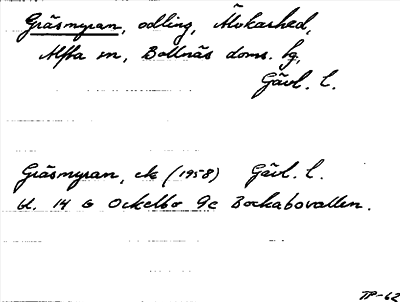 Gräsmyran, odling, Älvkarhed,
Alfta sn, Bollnäs doms. hg,
Gävl. l.
Gräsmyran, ek (1958) Gävl. l.
bl. 14 G Ockelbo 9c Bockabovallen.
TP-62